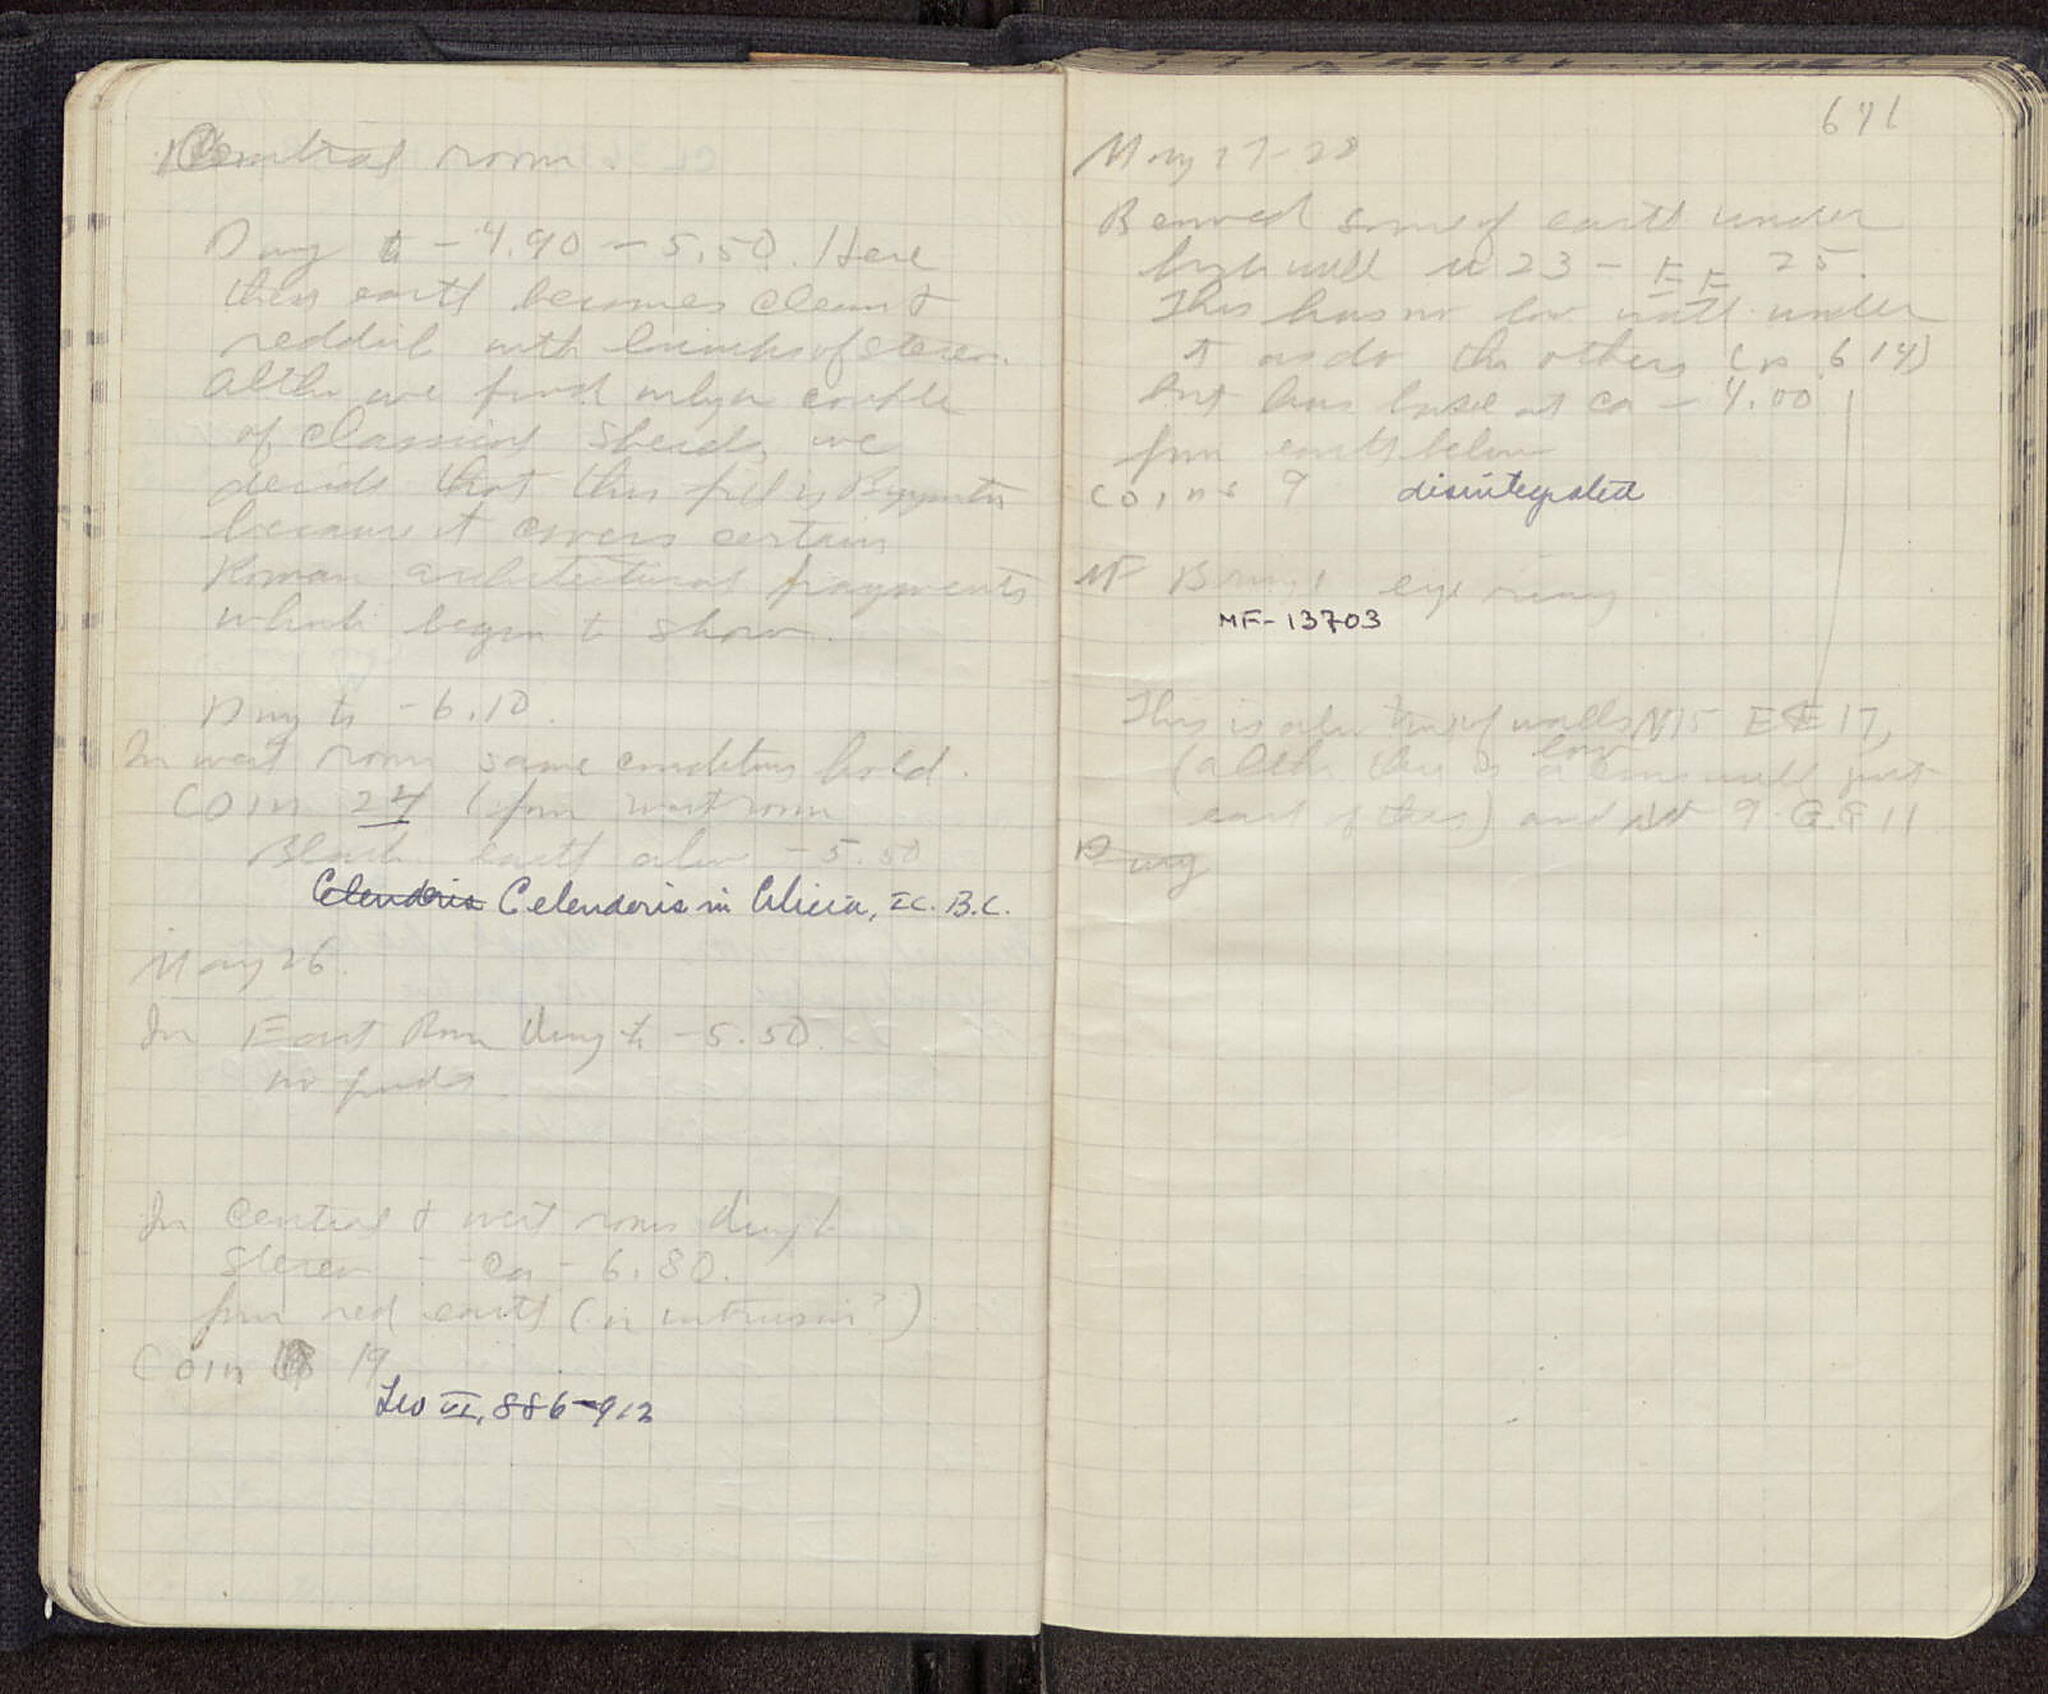 Central room.
Dug to -4.90 - 5.50. Here
this earth becomes clean &
reddish with bunches of stereo.
Altho we find only a couple
of classical sherds, we
decide that this fill is Byzantin
because it covers certain
Roman architectural fragments
which began to show.
Dug to -6.10.
In west room same conditions hold.
Coin 24 (from west room
Black earth above -5.50
Celenderis Celenderis in Cilicia, I C. B.C.
May 26.
In East Room dug to -5.50.
no finds
In central & west rooms dug to
stereo - ca - 6.80.
from red earth (or intrusion?)
Coin 19
Leo VI, 886-912
671
May 27-28
Removed some of earth under
high wall N 23 - EE 25.
This has no low wall under
it as do the others (p. 614)
but has base at ca - 4.00
from earth below
Coins 9 disintegrated
MF Bronze eye ring
MF-13703
This is also true of walls N15 EE 17,
(altho there is a low cross wall just
east of this) and 9 GG 11
Dug